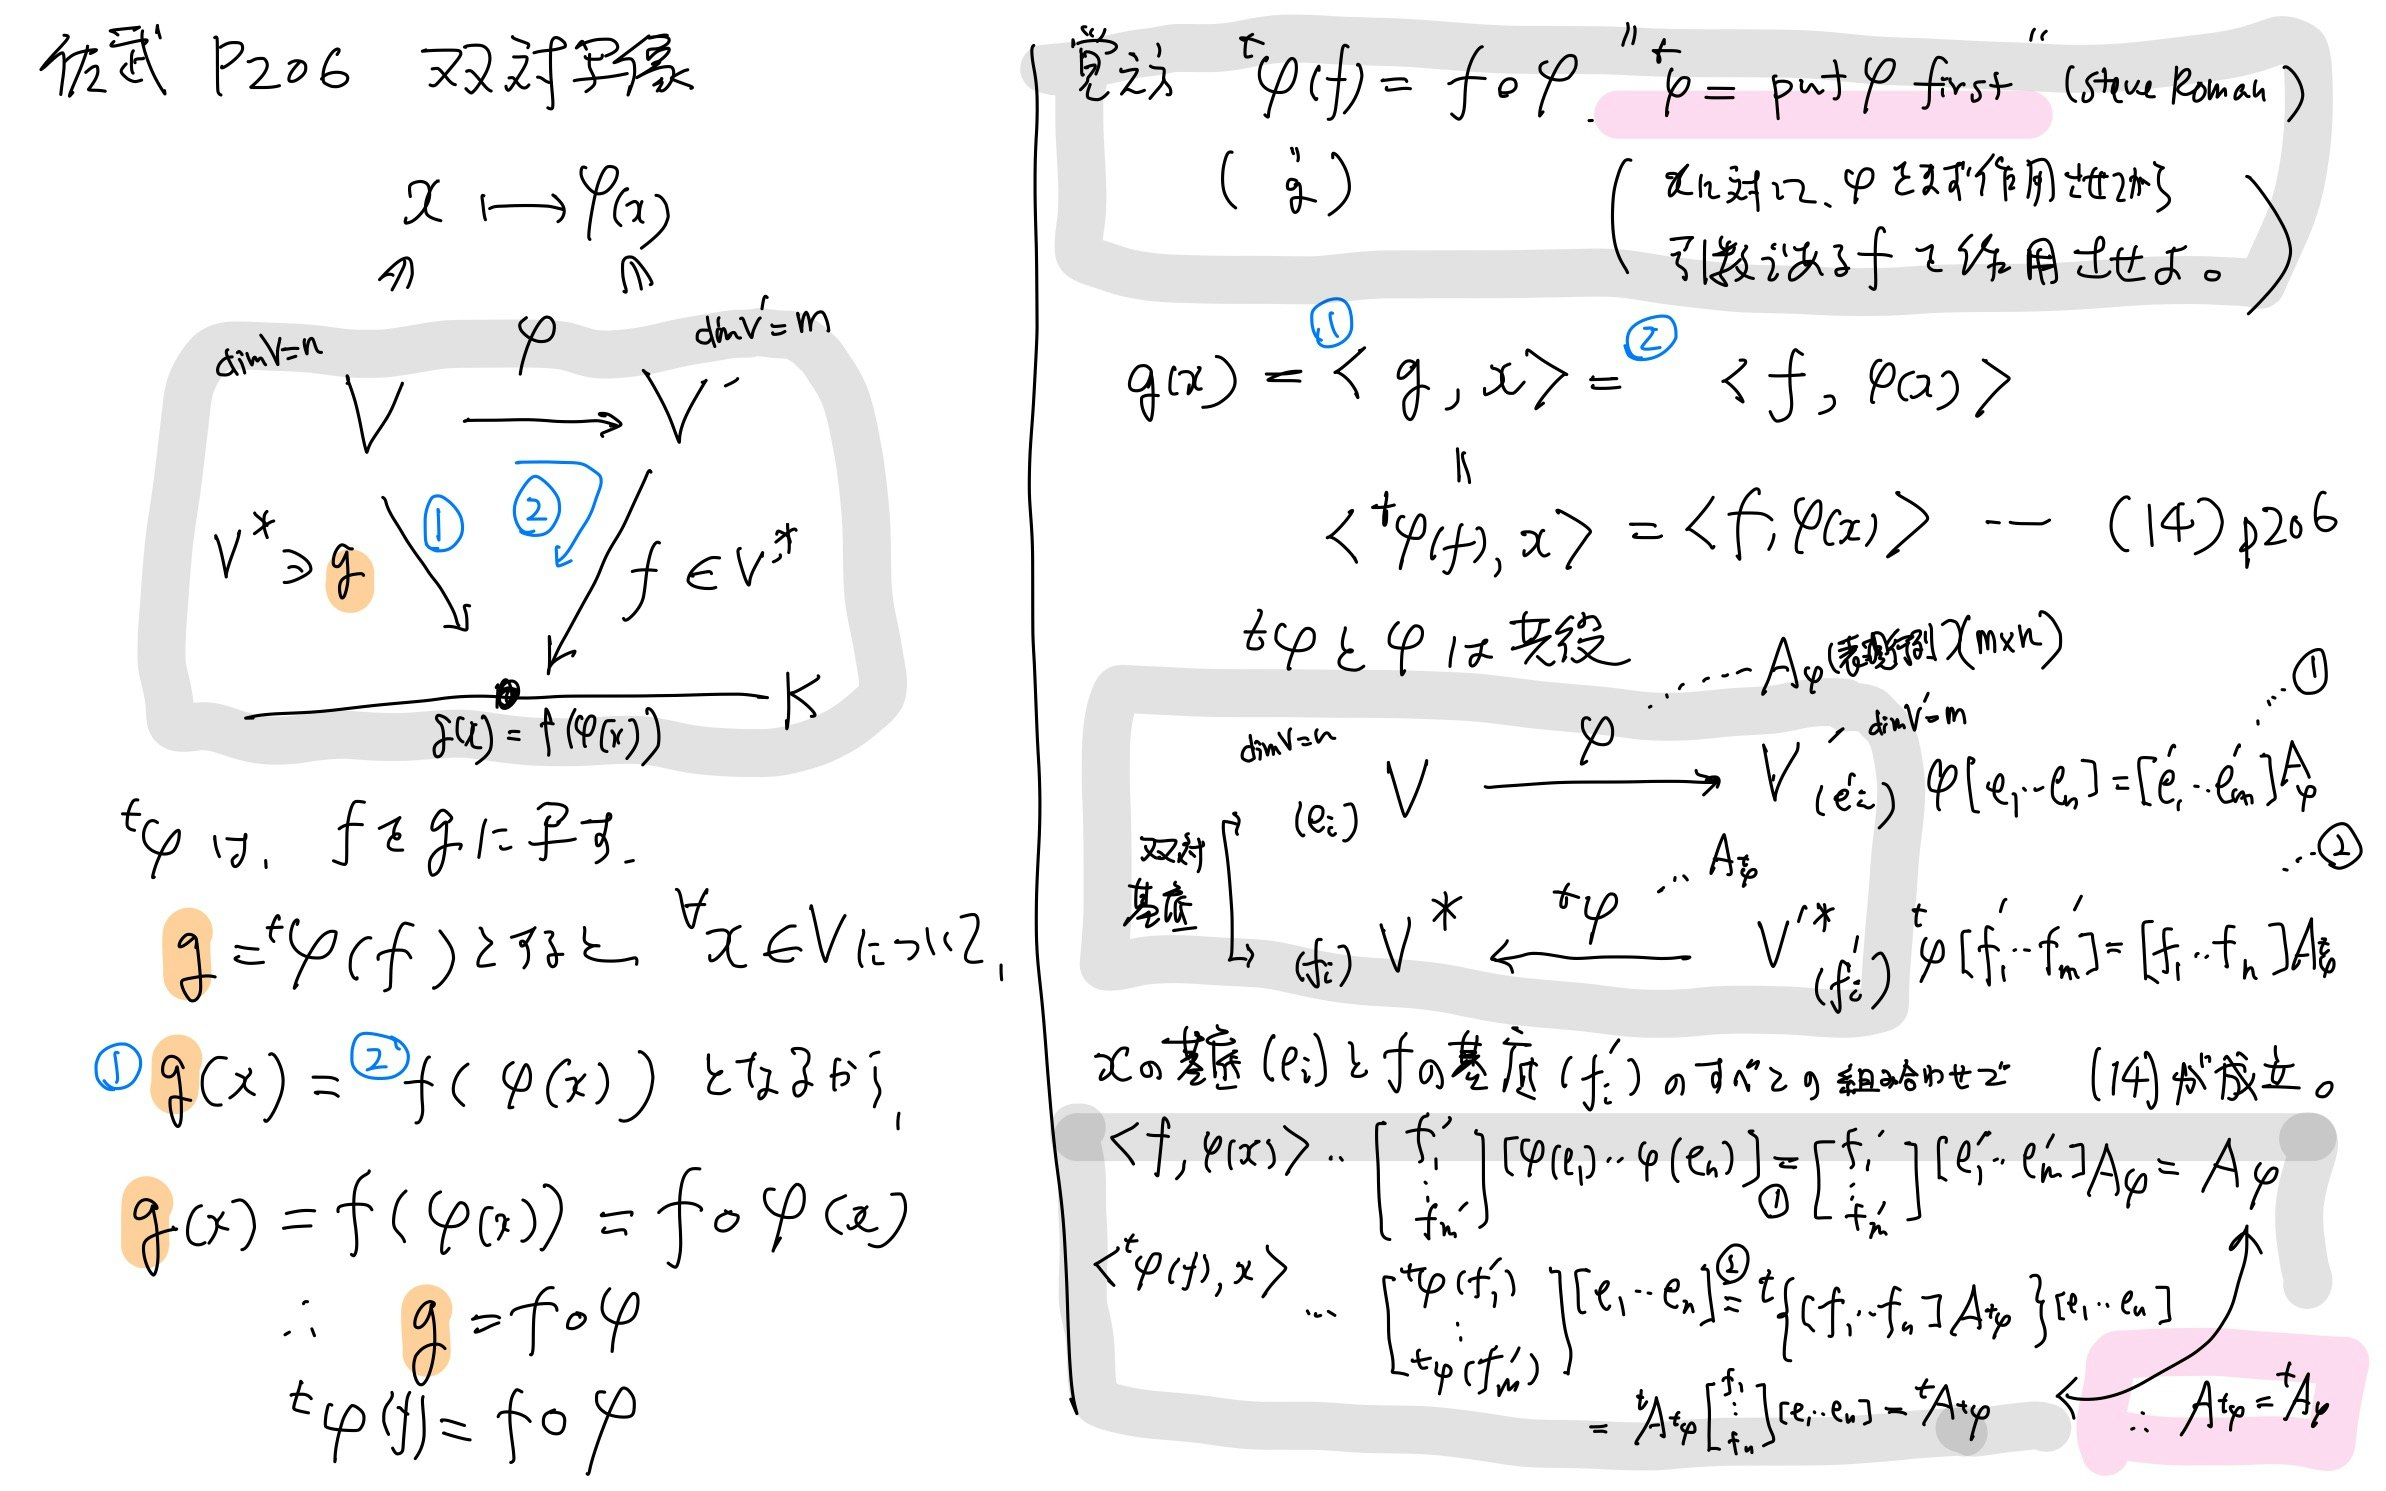 佐武 P206 双対写像
x ⟼ φ(x)
dimV=n φ dimV'=m
V → V'
① ②
V* ∋ g f ∈ V'*
K
g(x) = f(φ(x))
ᵗφ は、fをgに写す.
g = ᵗφ(f) とすると、 ∀x∈V について、
① g(x) = ② f(φ(x)) となるから、
g(x) = f(φ(x)) = f∘φ(x)
∴ g = f∘φ
ᵗφ(f) = f∘φ
覚え方 ᵗφ(f) = f∘φ. "ᵗφ = put φ first" (Steve Roman)
( " g )
( xに対して、φをまず作用させてから
引数であるfを作用させよ。 )
① ②
g(x) = < g, x > = < f, φ(x) >
||
< ᵗφ(f), x > = < f, φ(x) > ・・・ (14) p206
ᵗφ と φ は 共役
・・・ Aφ (表現行列) (m×n)
dimV=n φ dimV'=m ・・・①
(eᵢ) V → V' (e'ᵢ) φ[e₁‥eₙ] = [e'₁‥e'ₘ]Aφ
双対
基底
・・・ Aᵗφ ・・・②
(fᵢ) V* ← ᵗφ V'* (f'ᵢ) ᵗφ[f'₁‥f'ₘ] = [f₁‥fₙ]Aᵗφ
xの基底(eᵢ)とfの基底(f'ᵢ)のすべての組み合わせで (14)が成立。
<f, φ(x)> ‥ [f'₁ ⋮ f'ₘ] [φ(e₁)‥φ(eₙ)] =① [f'₁ ⋮ f'ₘ] [e'₁‥e'ₘ]Aφ = Aφ
<ᵗφ(f), x> ・・・ [ᵗφ(f'₁) ⋮ ᵗφ(f'ₘ)] [e₁‥eₙ] =② ᵗ{[f₁‥fₙ]Aᵗφ}[e₁‥eₙ]
= ᵗAᵗφ [f₁ ⋮ fₙ] [e₁‥eₙ] = ᵗAᵗφ
∴ Aᵗφ = ᵗAφ